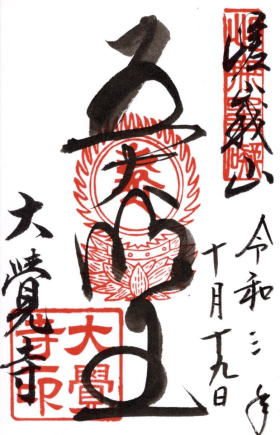 嵯峨山
令和三年
十月十九日
五大明王
大覺寺
大覺
寺印